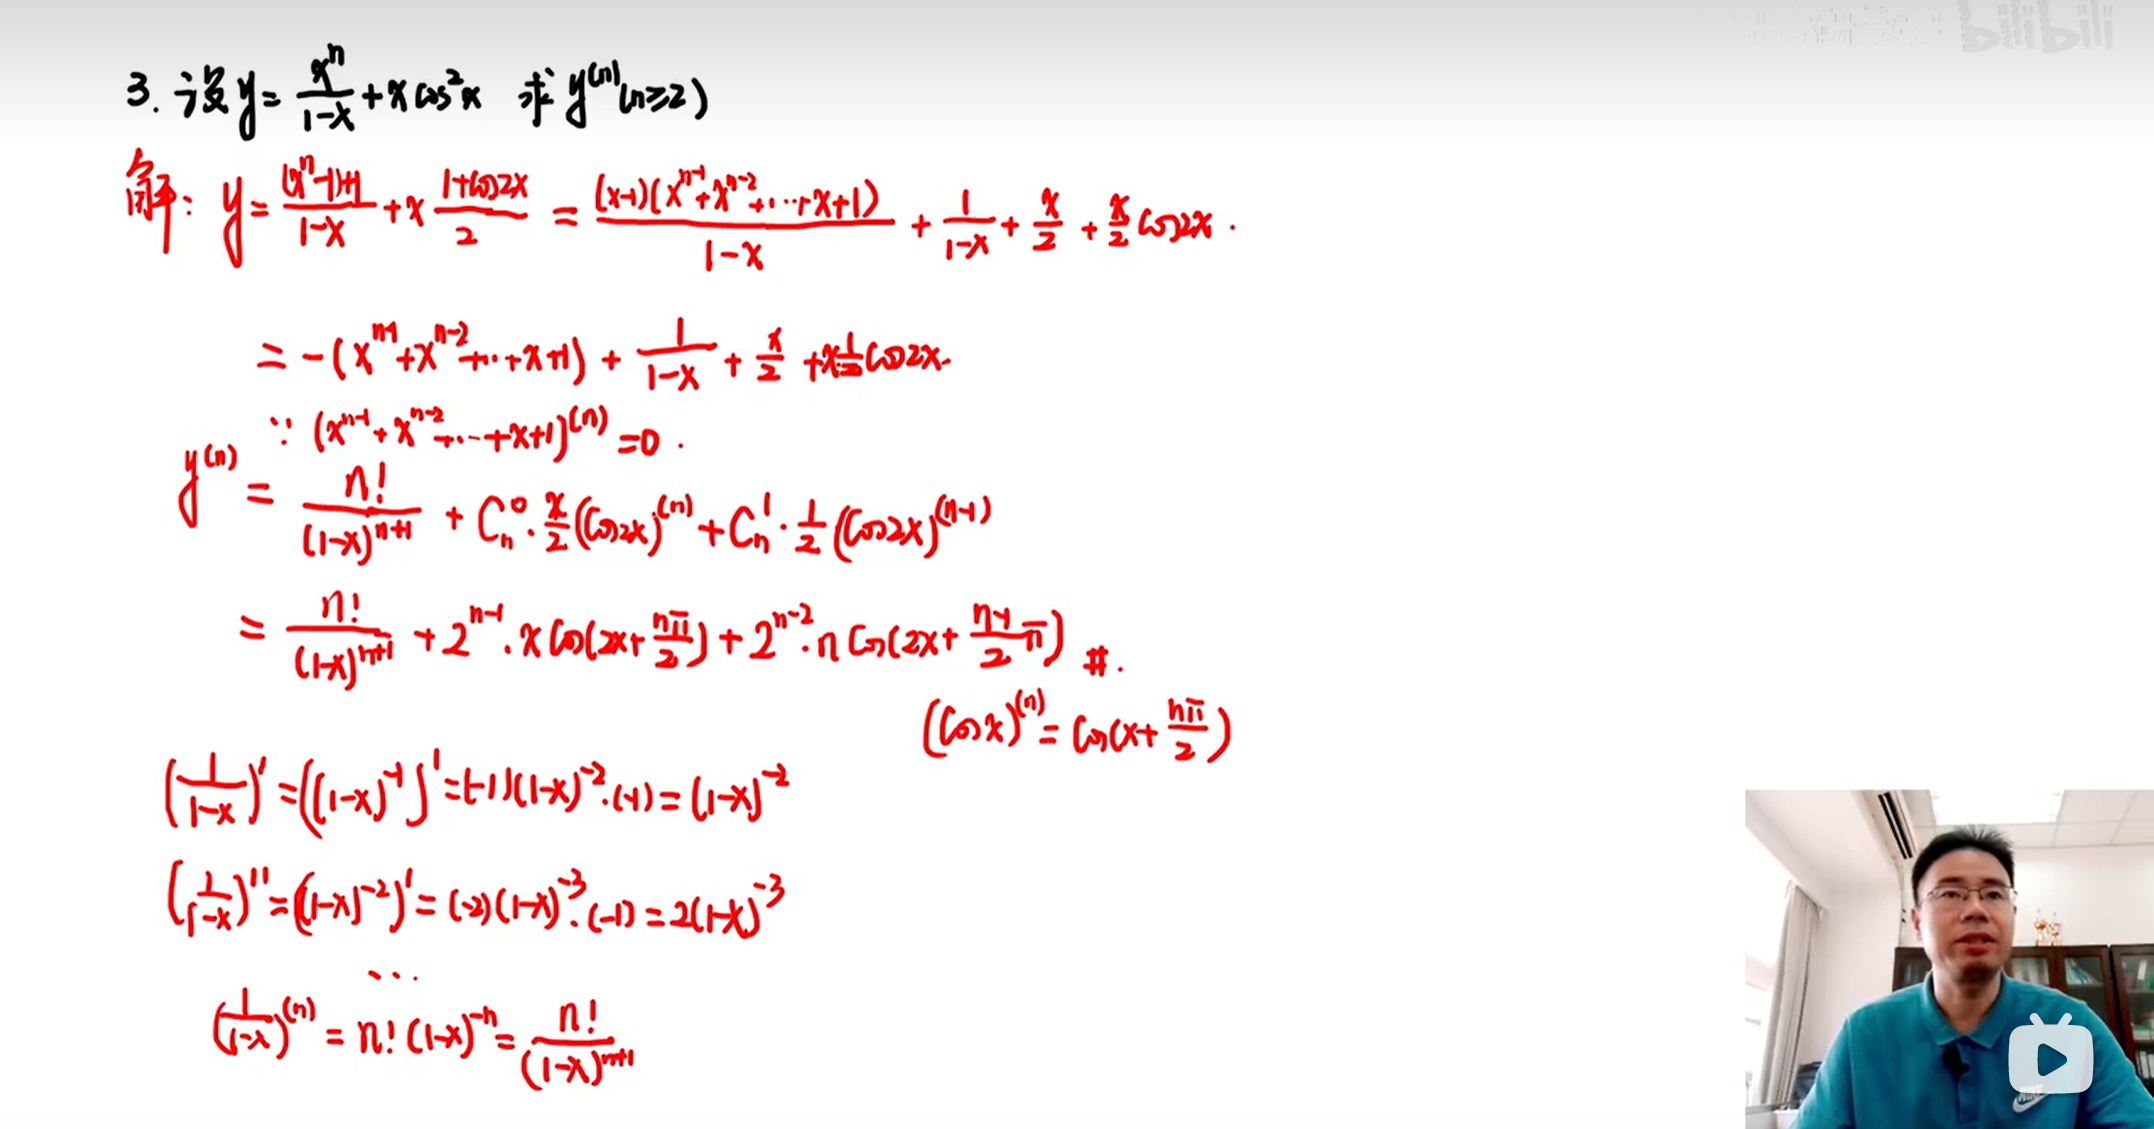 bilibili
3. 设 y = x^n/(1-x) + x cos²x 求 y^(n) (n≥2)
解: y = ((x^n-1)+1)/(1-x) + x (1+cos2x)/2 = (x-1)(x^(n-1)+x^(n-2)+···+x+1)/(1-x) + 1/(1-x) + x/2 + x/2 cos2x.
= -(x^(n-1)+x^(n-2)+···+x+1) + 1/(1-x) + x/2 + x·1/2 cos2x.
∵ (x^(n-1)+x^(n-2)+···+x+1)^(n) = 0.
y^(n) = n!/(1-x)^(n+1) + C_n^0 · x/2 (cos2x)^(n) + C_n^1 · 1/2 (cos2x)^(n-1)
= n!/(1-x)^(n+1) + 2^(n-1) · x cos(2x + nπ/2) + 2^(n-2) · n cos(2x + (n-1)/2 π) #.
(cosx)^(n) = cos(x + nπ/2)
(1/(1-x))' = ((1-x)^(-1))' = (-1)(1-x)^(-2) · (-1) = (1-x)^(-2)
(1/(1-x))'' = ((1-x)^(-2))' = (-2)(1-x)^(-3) · (-1) = 2(1-x)^(-3)
···
(1/(1-x))^(n) = n! (1-x)^(-n) = n!/(1-x)^(n+1)